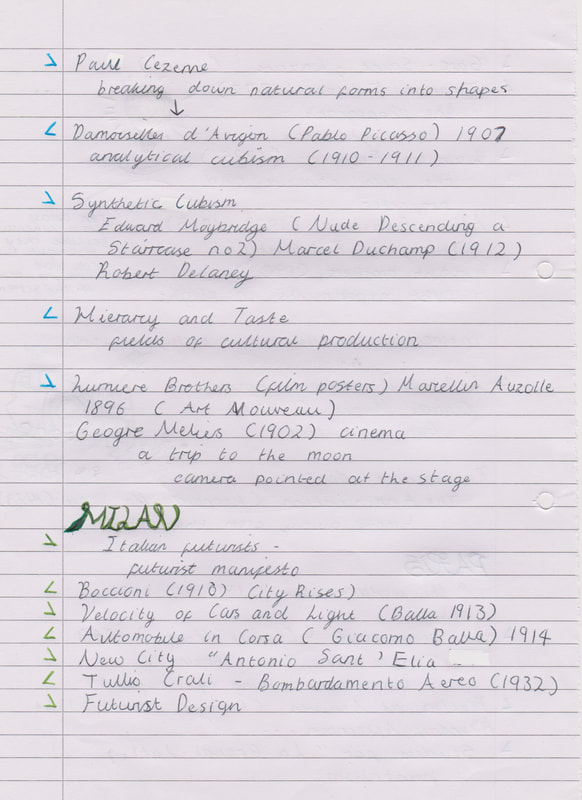 Paul Cezenne
breaking down natural forms into shapes
↓
Damoiselles d'Avigon (Pablo Picasso) 1907
analytical cubism (1910-1911)
Synthetic Cubism
Edward Moybridge (Nude Descending a
Staircase no2) Marcel Duchamp (1912)
Robert Delaney
Hierarcy and Taste
fields of cultural production
Lumiere Brothers (film posters) Marcellin Auzolle
1896 (Art Nouveau)
Geogre Melies (1902) cinema
a trip to the moon
camera pointed at the stage
MILAN
Italian futurists -
futurist manifesto
Boccioni (1910) City Rises)
Velocity of Cars and Light (Balla 1913)
Automobile in Corsa (Giacomo Balla) 1914
New City "Antonio Sant' Elia
Tullio Crali - Bombardamento Aereo (1932)
Futurist Design